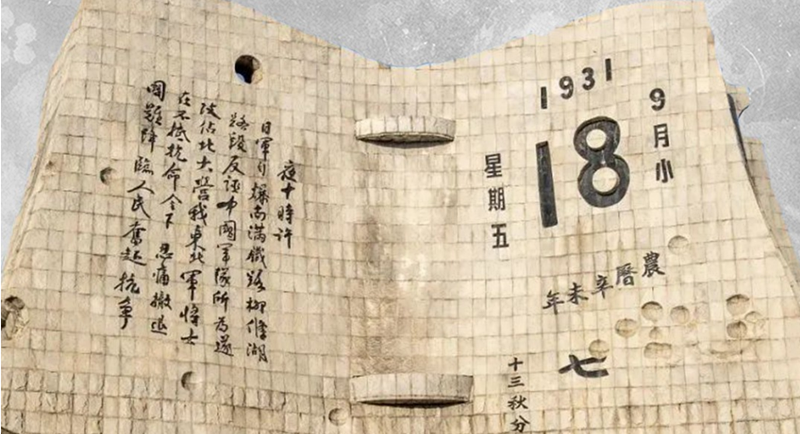 1931
9月小
18
星期五
農曆辛未年
七
十三秋分
夜十時許
日軍自爆南滿鐵路柳條湖
路段反誣中國軍隊所為遂
攻佔北大營我東北軍將士
在不抵抗命令下忍痛撤退
國難降臨人民奮起抗争